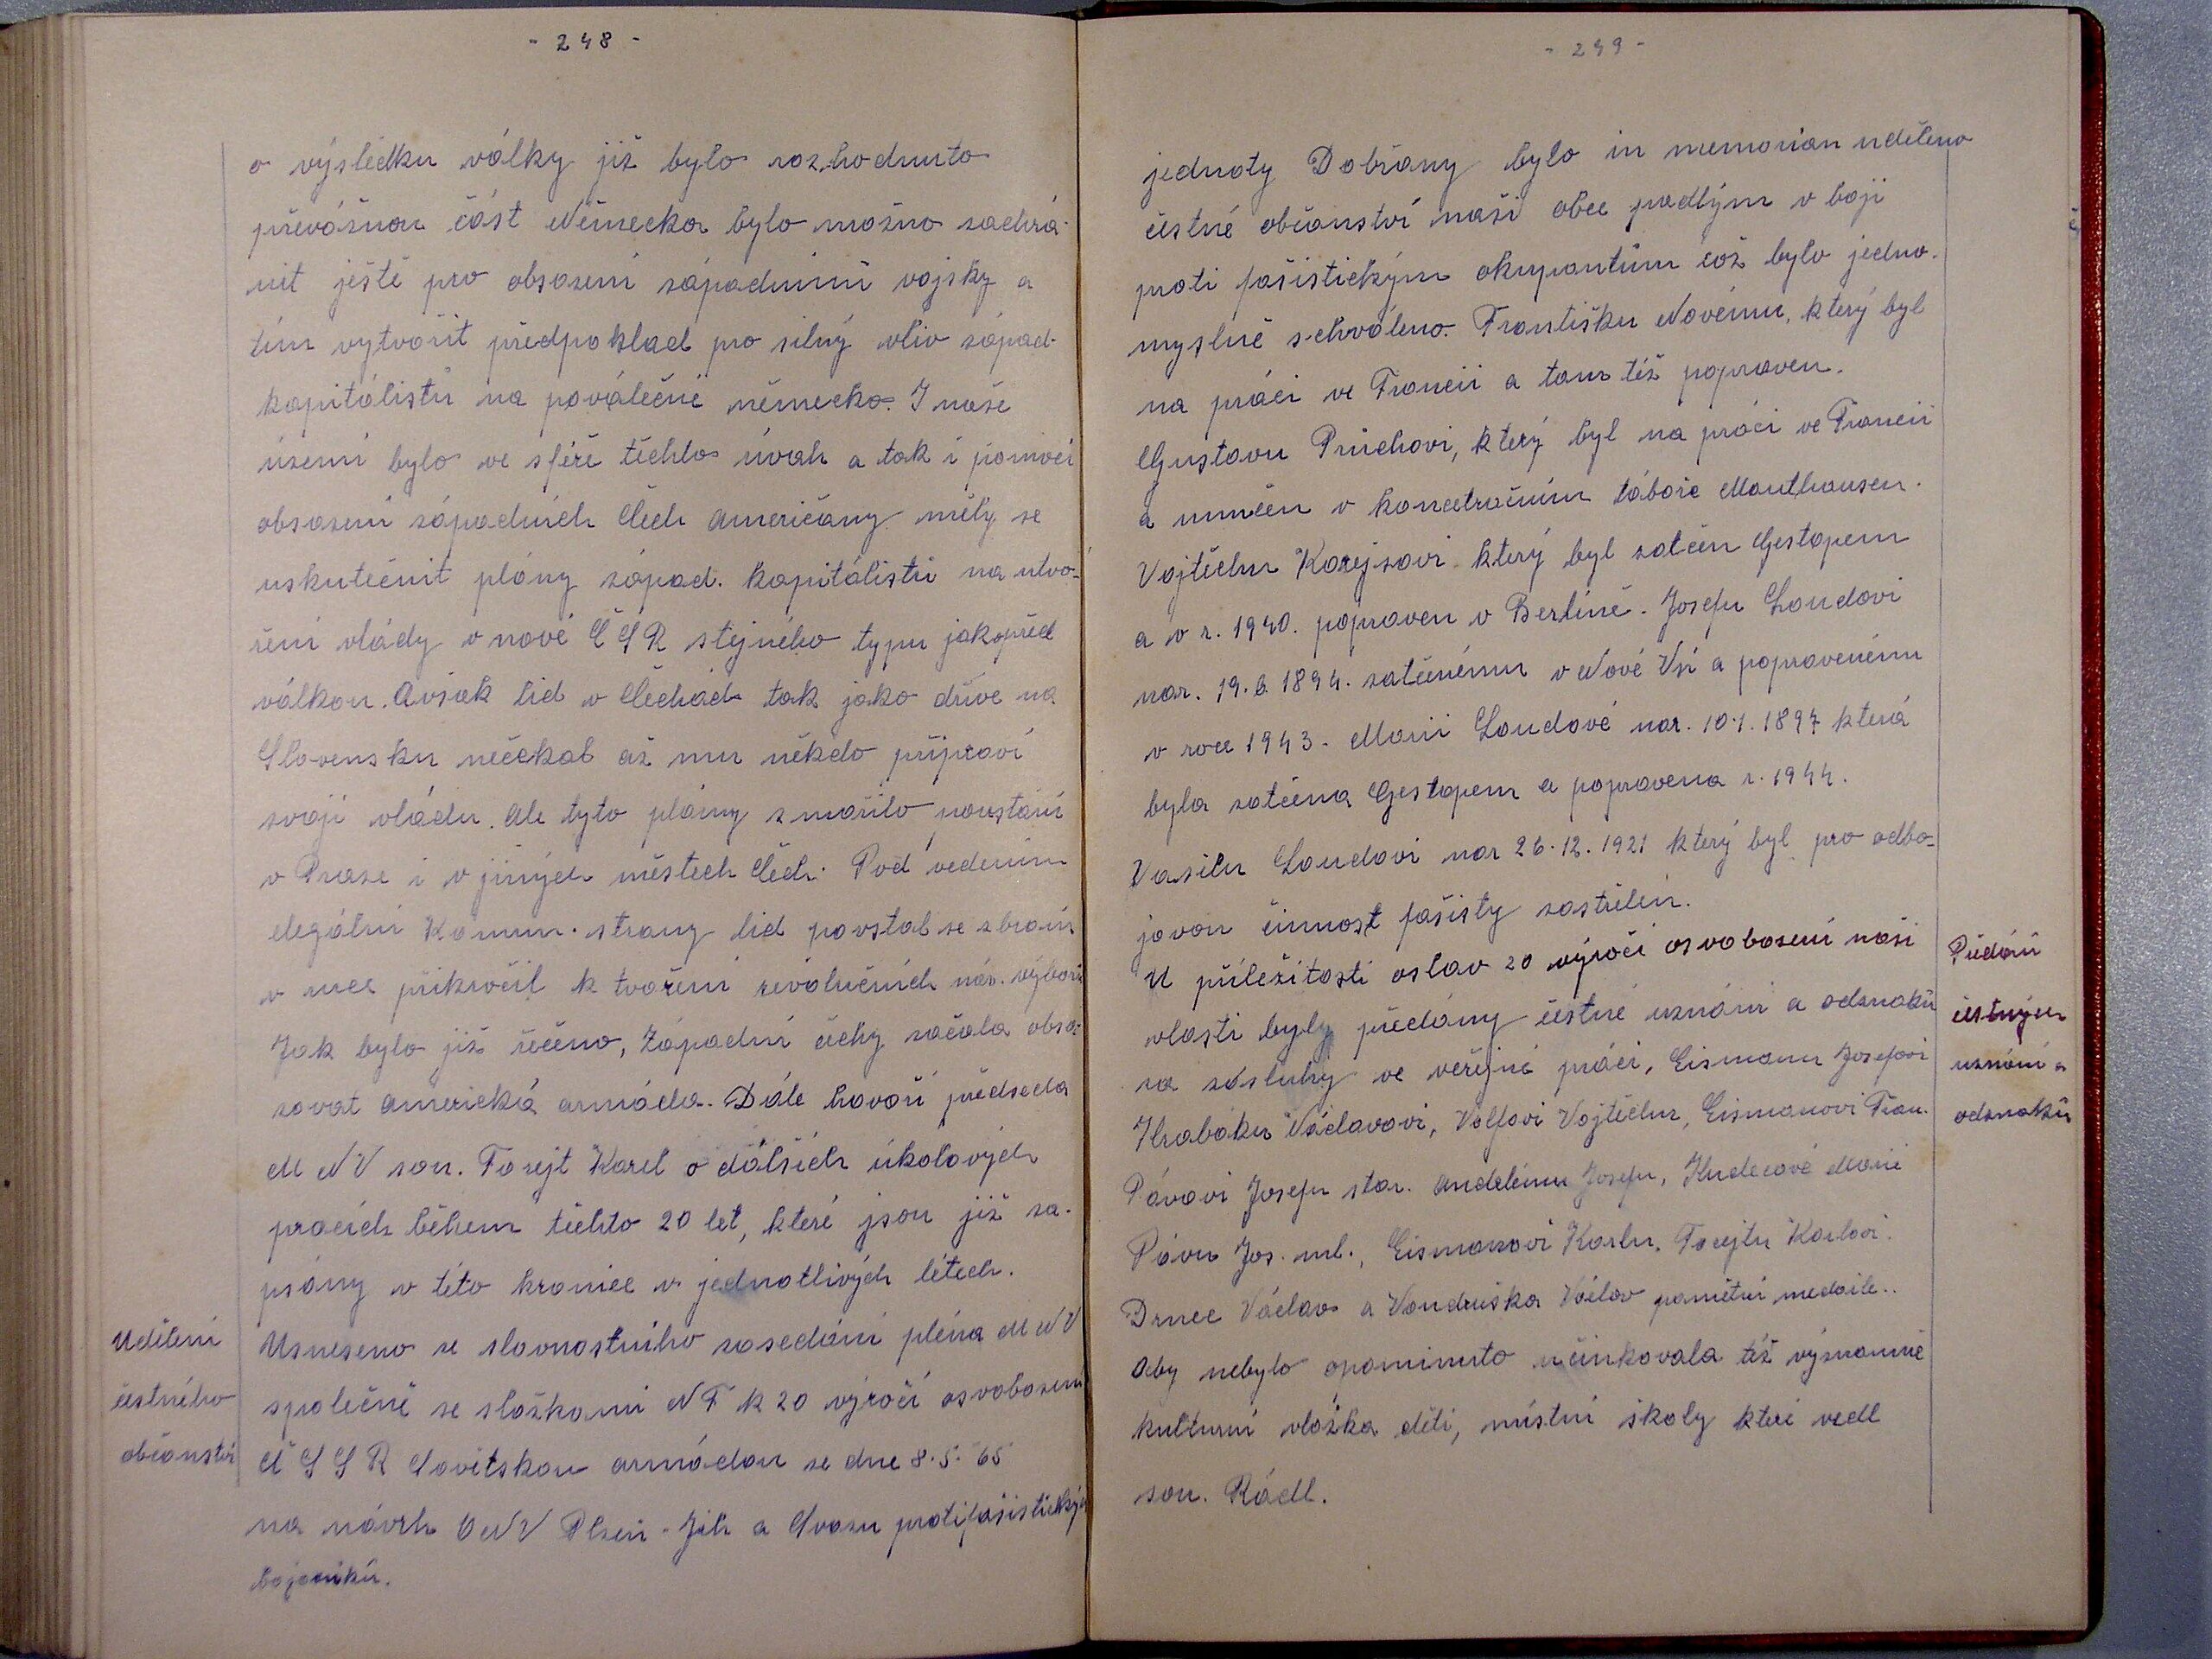 - 248 -
o výsledku války již bylo rozhodnuto
převážnou část Německa bylo možno zachrá-
nit ještě pro obsazení západními vojsky a
tím vytvořit předpoklad pro silný vliv západ.
kapitálistů na poválečné německo. I naše
území bylo ve sféře těchto úvah a tak i pomocí
obsazení západních Čech Američany měly se
uskutečnit plány západ. kapitálistů na utvo-
ření vlády v nové ČSR stejného typu jako před
válkou. Avšak lid v Čechách tak jako dříve na
Slovensku nečekal až mu někdo připraví
svoji vládu. Ale tyto plány zmařilo povstání
v Praze i v jiných městech Čech. Pod vedením
ilegální Komun. strany lid povstal se zbraní
v ruce přikročil k tvoření revolučních nár. výborů
Jak bylo již řečeno, Západní čechy začala obsa-
zovat americká armáda. Dále hovoří předseda
MNV sou. Forejt Karel o dálších úkolových
pracích během těchto 20 let, které jsou již za-
psány v této kronice v jednotlivých létech.
Udělení
čestného
občanství
Usneseno se slavnostního zasedání pléna MNV
společně se složkami NF k 20 výročí osvobození
ČSSR Sovětskou armádou ze dne 8.5.65
na návrh ONV Plzeň-Jih a Svazu protifašistických
bojovníků.
- 249 -
jednoty Dobřany bylo in memorian uděleno
čestné občanství naši obce padlým v boji
proti fašistickým okupantům což bylo jedno-
myslně schváleno. Františku Novému, který byl
na práci ve Francii a tam též popraven.
Gustavu Průchovi, který byl na práci ve Francii
a umučen v koncetračním táboře Mauthausen.
Vojtěchu Korejsovi který byl zatčen Gestapem
a v r. 1940. popraven v Berlíně. Josefu Loudovi
nar. 19.6 1894. zatčenému v Nové Vsi a popravenému
v roce 1943. Marii Loudové nar. 10.1. 1897 která
byla zatčena Gestapem a popravena r. 1944.
Vasilu Loudovi nar 26.12.1921 který byl pro odbo-
jovou činnost fašisty zastřelen.
Předání
čestných
uznání a
odznaků
U příležitosti oslav 20 výročí osvobození naši
vlasti byly předány čestné uznání a odznaků
za zásluhy ve veřejné práci, Eismanu Josefovi
Hrabáku Václavovi, Volfovi Vojtěchu, Eismanovi Fran.
Pávovi Josefu star. Andělému Josefu, Kudrnové Marii
Pávu Jos. ml., Eismanovi Karlu, Forejtu Karlovi.
Drnec Václav a Vondruška Václav pamětní medaile..
Aby nebylo opominuto učinkovala též významěně
kulturní vložka dětí, místní školy které vedl
sou. Rádl.